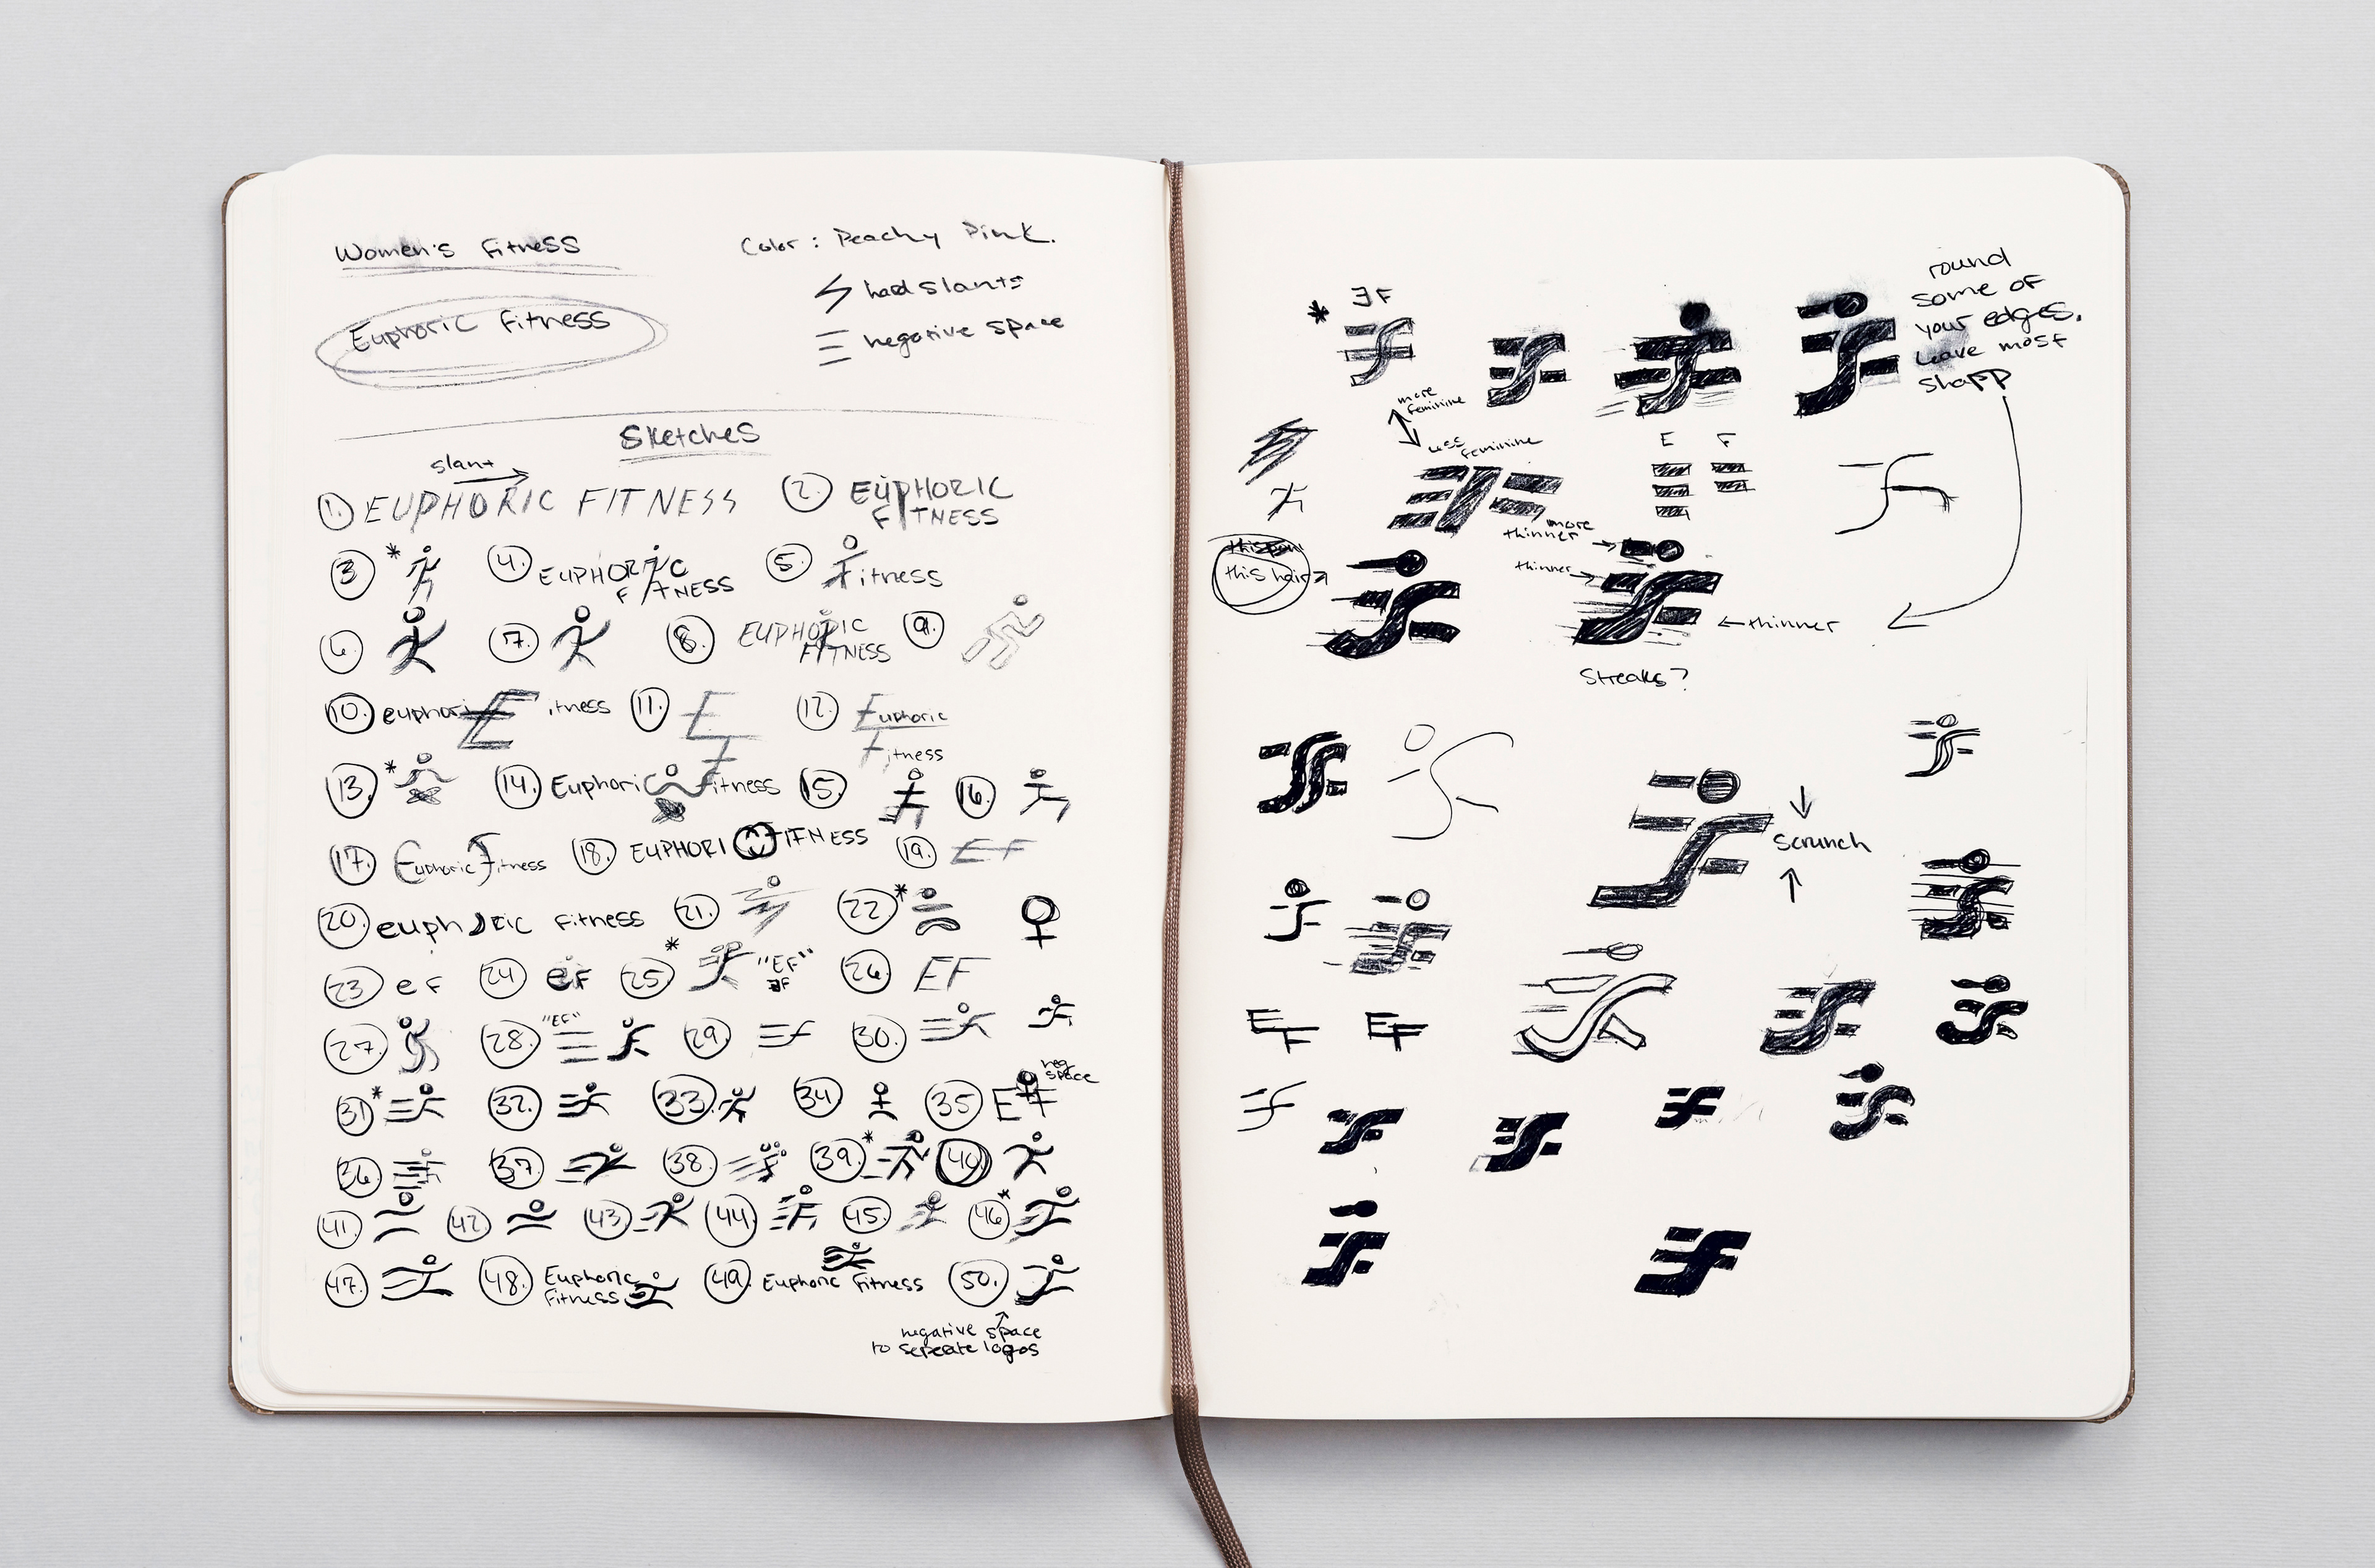 Women's Fitness
Euphoric Fitness
Color: Peachy Pink.
hard slants
negative space
Sketches
slant
1. EUPHORIC FITNESS
2. EUPHORIC
FITNESS
3. *
4. EUPHORIC
FITNESS
5. Fitness
6.
7.
8. EUPHORIC
FITNESS
9.
10. euphoric fitness
11. E
F
12. Euphoric
Fitness
13. *
14. Euphoric Fitness
15.
16.
17. Euphoric Fitness
18. EUPHORI FITNESS
19. EF
20. euphoric fitness
21.
22. *
23. eF
24. eF
25. * "EF"
ƎF
26. EF
27.
28. "EF"
29.
30.
31. *
32.
33.
34.
35. EF
neg
space
36.
37.
38.
39. *
40.
41.
42.
43.
44.
45.
46. *
47.
48. Euphoric
Fitness
49. Euphoric Fitness
50.
negative space
to seperate logos
* ƎF
round
some of
your edges.
Leave most
sharp
more
feminine
less
feminine
E F
this hair
more
thinner
thinner
thinner
Streaks?
Scrunch
EF EF